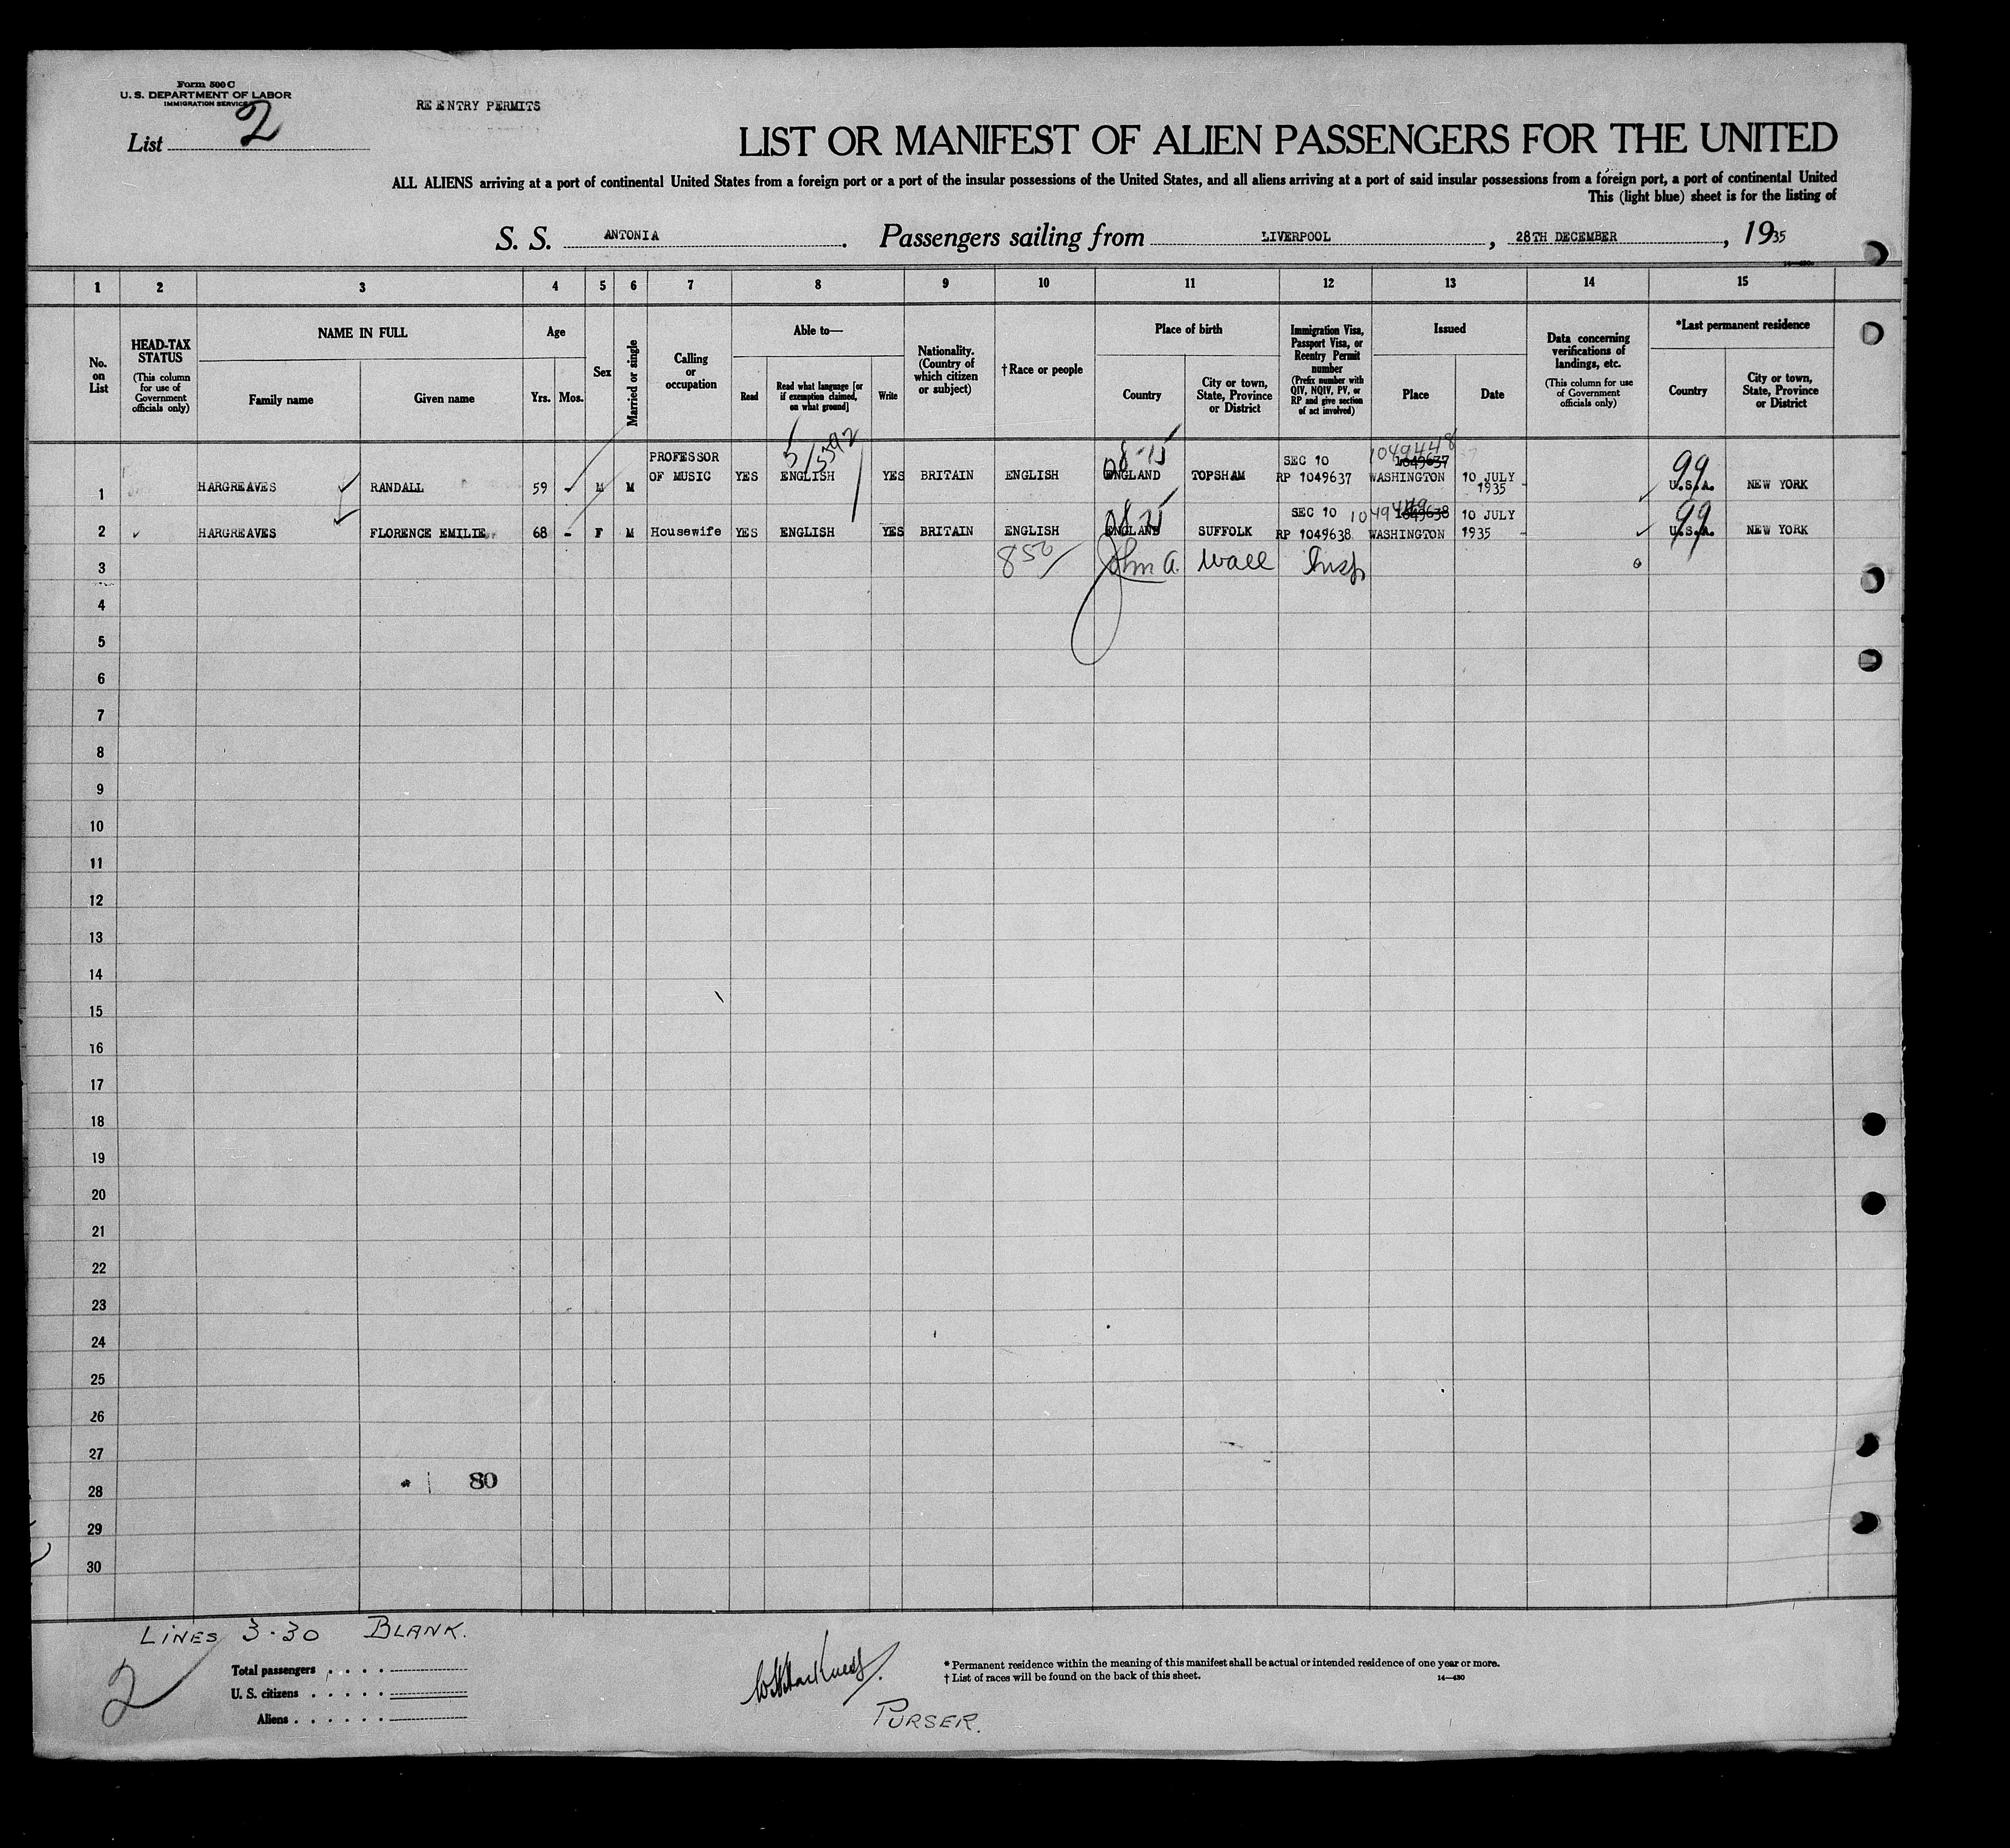 Form 500 C
U. S. DEPARTMENT OF LABOR
IMMIGRATION SERVICE
RE ENTRY PERMITS
List 2
LIST OR MANIFEST OF ALIEN PASSENGERS FOR THE UNITED
ALL ALIENS arriving at a port of continental United States from a foreign port or a port of the insular possessions of the United States, and all aliens arriving at a port of said insular possessions from a foreign port, a port of continental United
This (light blue) sheet is for the listing of
S. S. ANTONIA. Passengers sailing from LIVERPOOL, 28TH DECEMBER, 1935
1 2 3 4 5 6 7 8 9 10 11 12 13 14 15
No. on List
HEAD-TAX STATUS (This column for use of Government officials only)
NAME IN FULL
Family name
Given name
Age
Yrs.
Mos.
Sex
Married or single
Calling or occupation
Able to—
Read
Read what language [or if exemption claimed, on what ground]
Write
Nationality. (Country of which citizen or subject)
† Race or people
Place of birth
Country
City or town, State, Province or District
Immigration Visa, Passport Visa, or Reentry Permit number (Prefix number with QIV, NQIV, PV, or RP and give section of act involved)
Issued
Place
Date
Data concerning verifications of landings, etc. (This column for use of Government officials only)
*Last permanent residence
Country
City or town, State, Province or District
1 HARGREAVES RANDALL 59 M M PROFESSOR OF MUSIC YES ENGLISH YES BRITAIN ENGLISH ENGLAND TOPSHAM SEC 10 RP 1049637 1049448 1049637 WASHINGTON 10 JULY 1935 99 U.S.A. NEW YORK
2 HARGREAVES FLORENCE EMILIE 68 - F M Housewife YES ENGLISH YES BRITAIN ENGLISH ENGLAND SUFFOLK SEC 10 RP 1049638 1049638 WASHINGTON 10 JULY 1935 - 99 U.S.A. NEW YORK
3 850 John A. Wall Insp
4
5
6
7
8
9
10
11
12
13
14
15
16
17
18
19
20
21
22
23
24
25
26
27
80
28
29
30
LINES 3-30 BLANK.
2
Total passengers
U. S. citizens
Aliens
PURSER.
* Permanent residence within the meaning of this manifest shall be actual or intended residence of one year or more.
† List of races will be found on the back of this sheet.
14—430